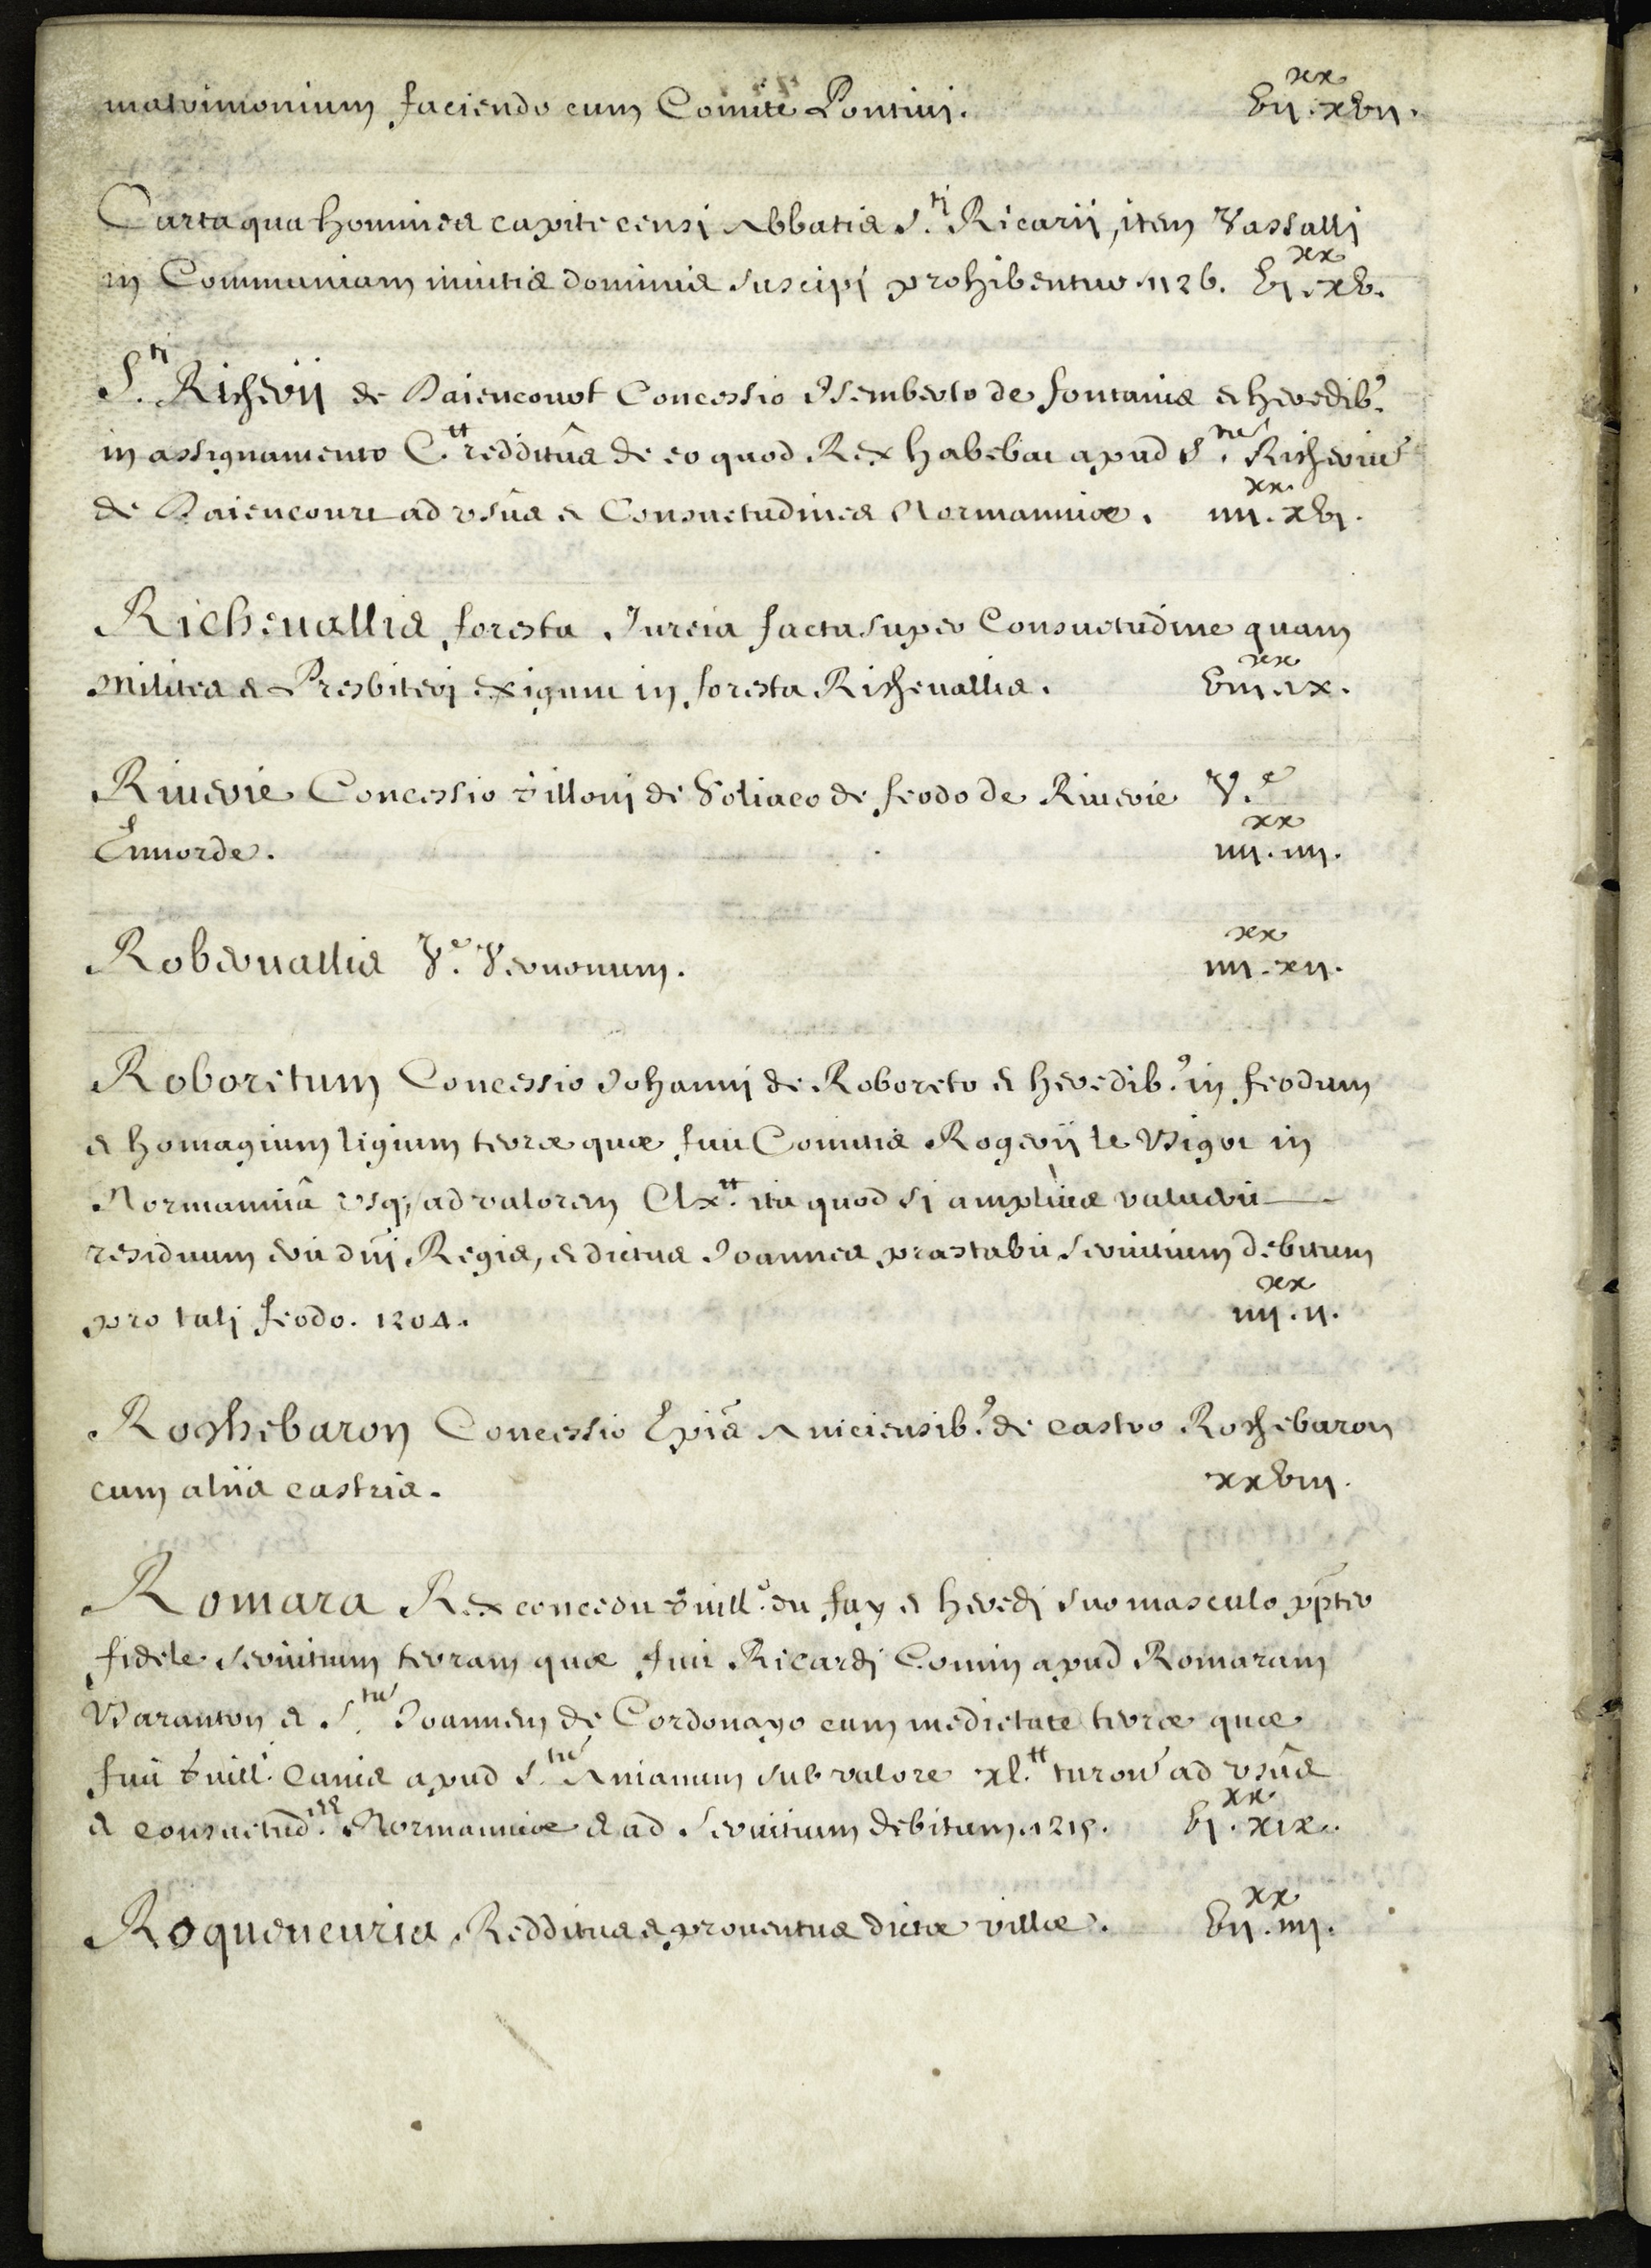 matrimonium faciendo cum Comite Pontiui. vii.xx xvii.
Carta qua homines capite censi Abbatis S.ti Ricarii, item Vassalli
in Communiam inuitis dominis suscipi prohibentur. 1126. vi.xx xv.
S.ti Richerii de Daiencourt Concessio Isemberto de fontanis et heredib9.
in assignamento C.tt redditûs de eo quod Rex habebat apud S.m Richeriu
de Daiencourt ad vsûs et Consuetudines Normanniæ. iiii.xx xvi.
Richeuallis foresta Jureia facta super Consuetudine quam
Milites et Presbiteri exigunt in foresta Richeuallis. viii.xx ix.
Riuerie Concessio Gilloni de Soliaco de feodo de Riuerie V.e
Ennorde. iiii.xx iiii.
Roberuallis V.e Vernonum. iiii.xx xii.
Roboretum Concessio Johanni de Roboreto et heredib9. in feodum
et homagium ligium terræ quæ fuit Comitis Rogerii le Bigot in
Normanniâ vsq; ad valorem Clx.tt ita quod si ampliùs valuerit
residuum erit dni Regis, et dictus Joannes præstabit seruitium debitum
pro tali feodo. 1204. iiii.xx ii.
Rochebaron Concessio Epis Aniciensib9. de castro Rochebaron
cum aliis castris. xxviii.
Romara Rex concedit Guill.o du fay et heredi suo masculo ppter
fidele seruitium terram quæ fuit Ricardi Comin apud Romaram
Baranton et S.tu Joannem de Cordonayo cum medietate terræ quæ
fuit Guill.i Canis apud S.tu Anianum sub valore xl.tt turon ad vsûs
et consuetud.nes Normanniæ et ad seruitium debitum. 1215. vi.xx xix.
Roqueneuria Redditus et prouentus dictæ villæ. vii.xx iiii.